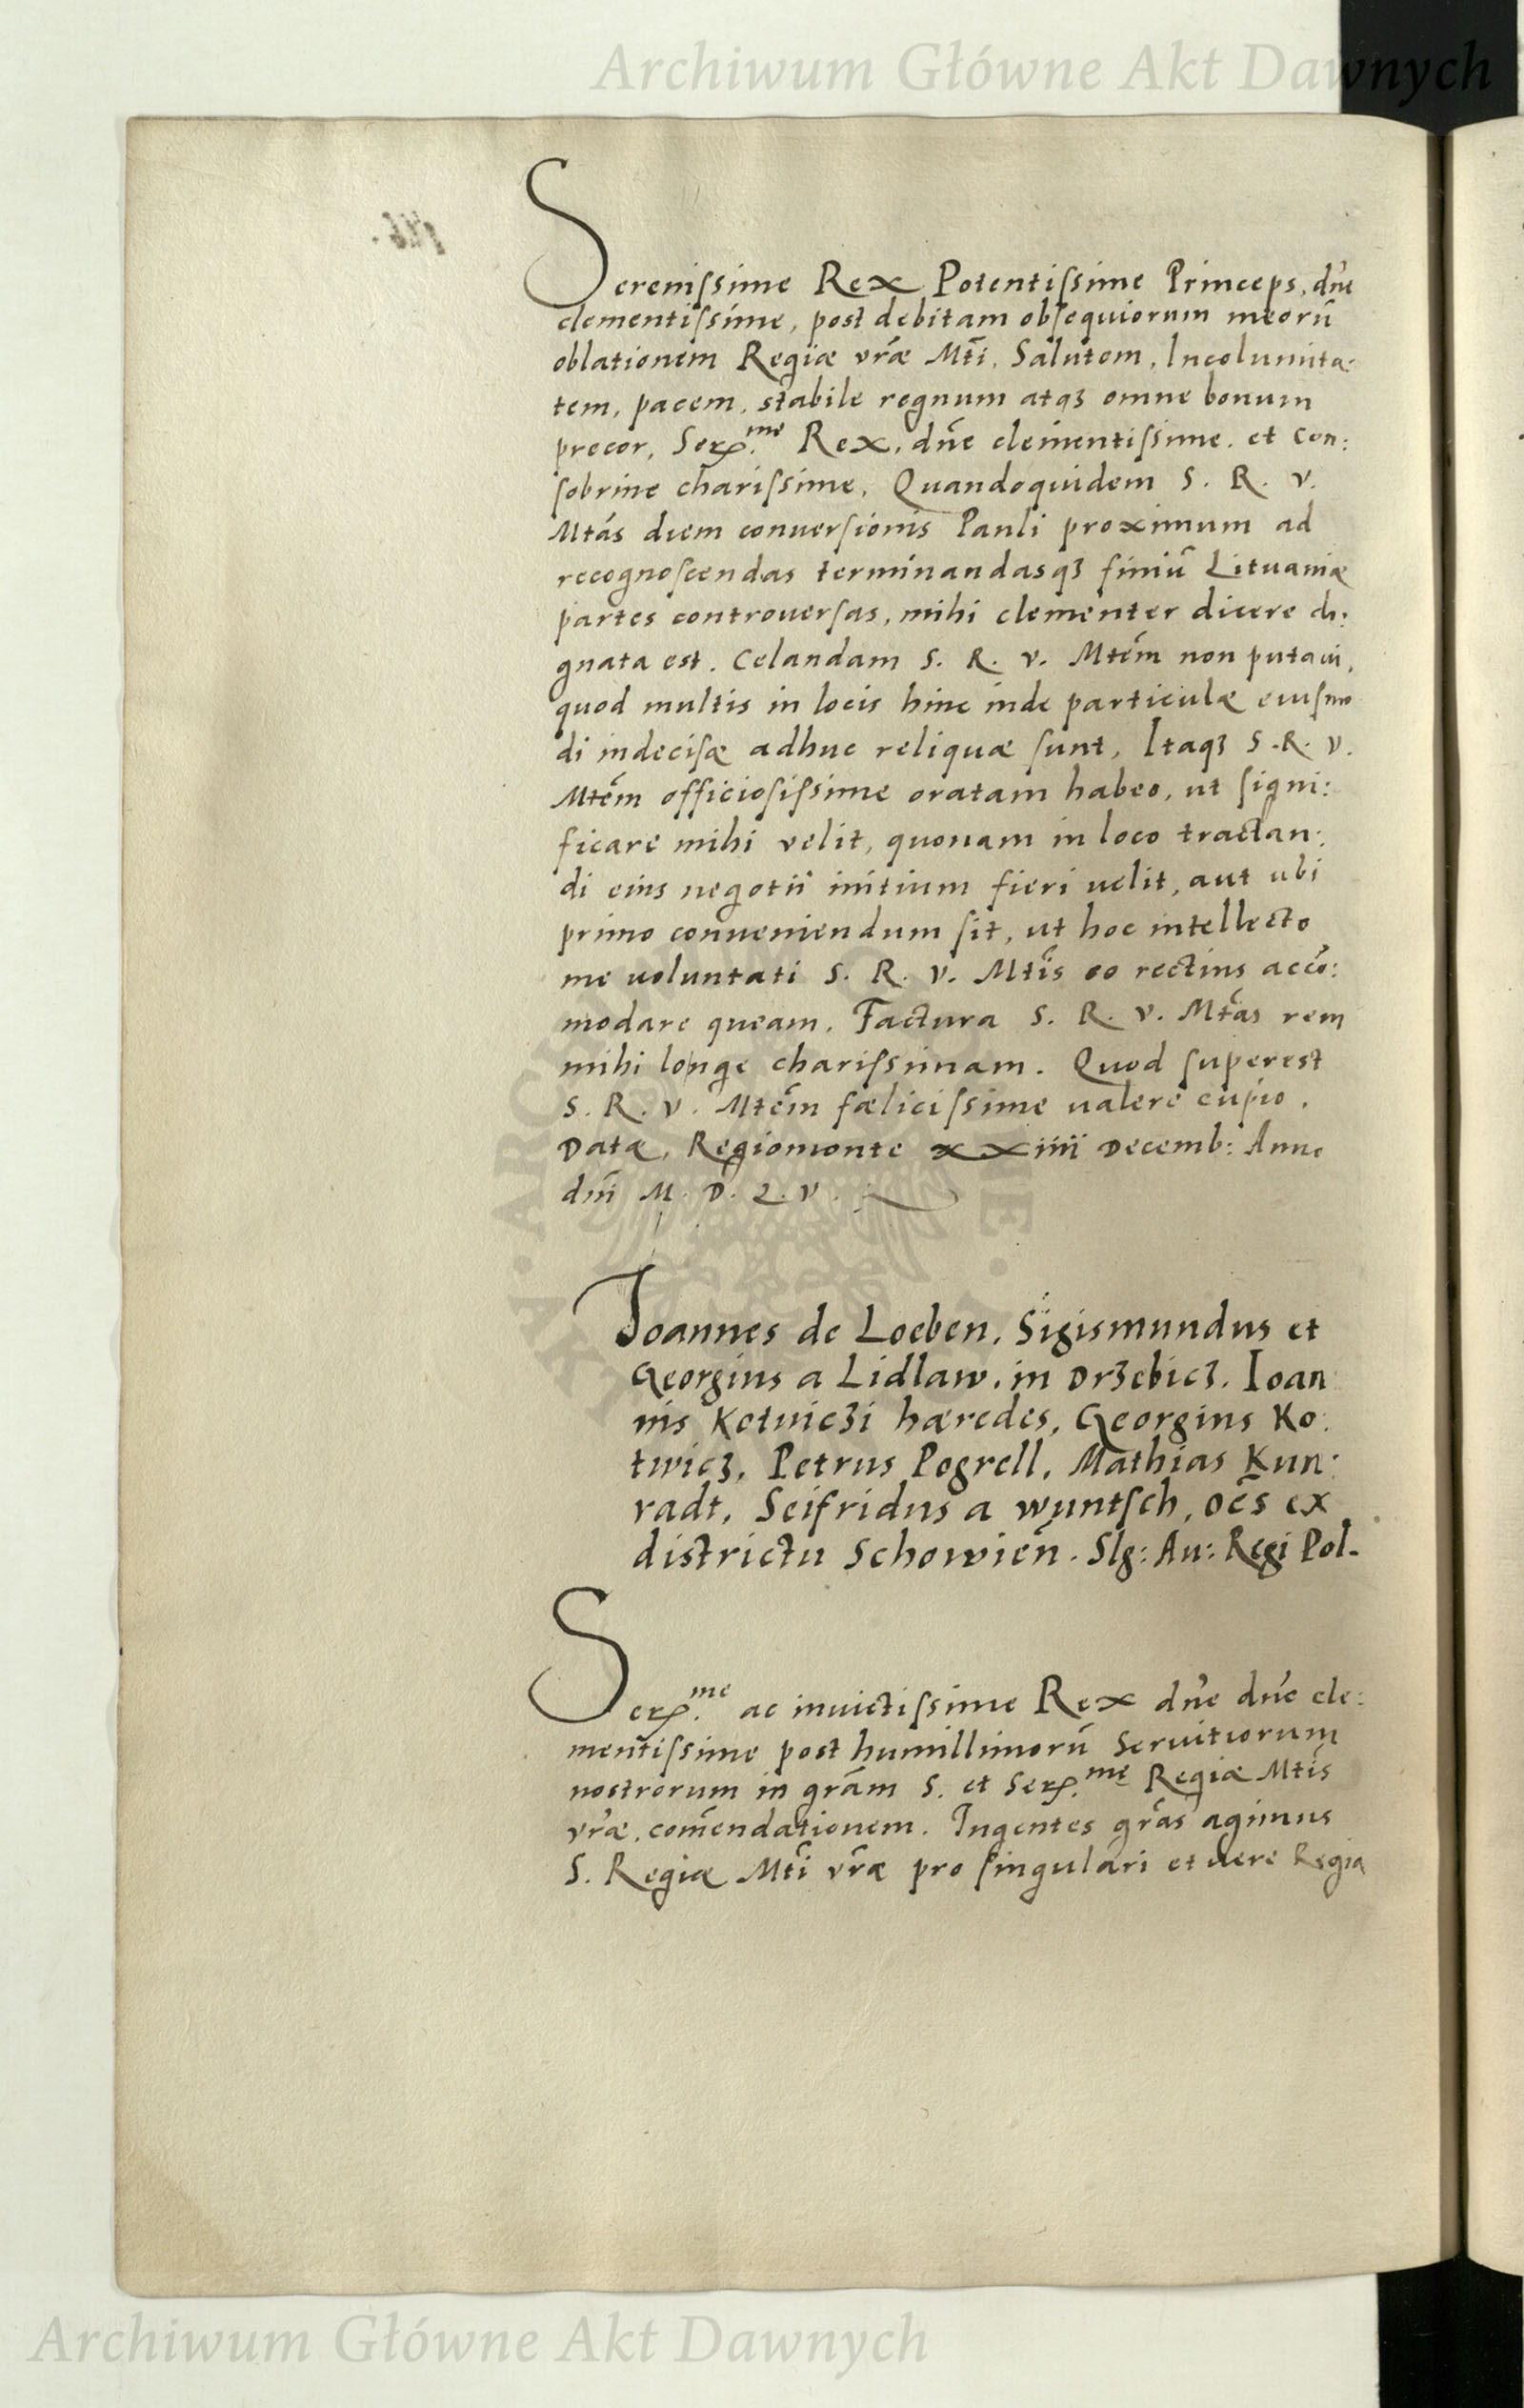 Archiwum Główne Akt Dawnych
Serenissime Rex Potentissime Princeps, dn̄e
clementissime, post debitam obsequiorum meorū
oblationem Regiæ vr̄æ Mti, Salutem, Incolumita:
tem, pacem, stabile regnum atqꝫ omne bonum
precor, Ser.me Rex, dn̄e clementissime, et Con:
sobrine charissime, Quandoquidem S. R. V.
Mtās diem conversionis Pauli proximum ad
recognoscendas terminandasqꝫ finiū Lituaniæ
partes controversas, mihi clementer dicere di:
gnata est. Celandam S. R. V. Mtēm non putaui,
quod multis in locis hinc inde particulæ eiusmo
di indecisæ adhuc reliquæ sunt, Itaqꝫ S. R. V.
Mtēm officiosissime oratam habeo, ut signi:
ficare mihi velit, quonam in loco tractan:
di eius negotii initium fieri uelit, aut ubi
primo conueniendum sit, ut hoc intellecto
me uoluntati S. R. V. Mtis eo rectius accō:
modare queam, Factura S. R. V. Mtās rem
mihi longe charissimam. Quod superest
S. R. V. Mtēm fælicissime ualere cupio.
Datæ, Regiomonte xxiiii Decemb: Anno
dn̄i M. D. L. V.
Joannes de Loeben, Sigismundus et
Georgius a Lidlaw, in Drzebicz, Ioan
nis Kotuiczi hæredes, Georgius Ko:
twicz, Petrus Pogrell, Mathias Kun:
radt, Seifridus a wuntsch, oēs ex
districtu Schowien̄. Slg: Au: Regi Pol.
Ser.me ac inuictissime Rex dn̄e dn̄e cle:
mentissime post humillimorū Seruitiorum
nostrorum in grām S. et Ser.me Regiæ Mtis
vr̄æ, com̄endationem. Ingentes grās agimus
S. Regiæ Mti vr̄æ pro singulari et uere Regia
Archiwum Główne Akt Dawnych